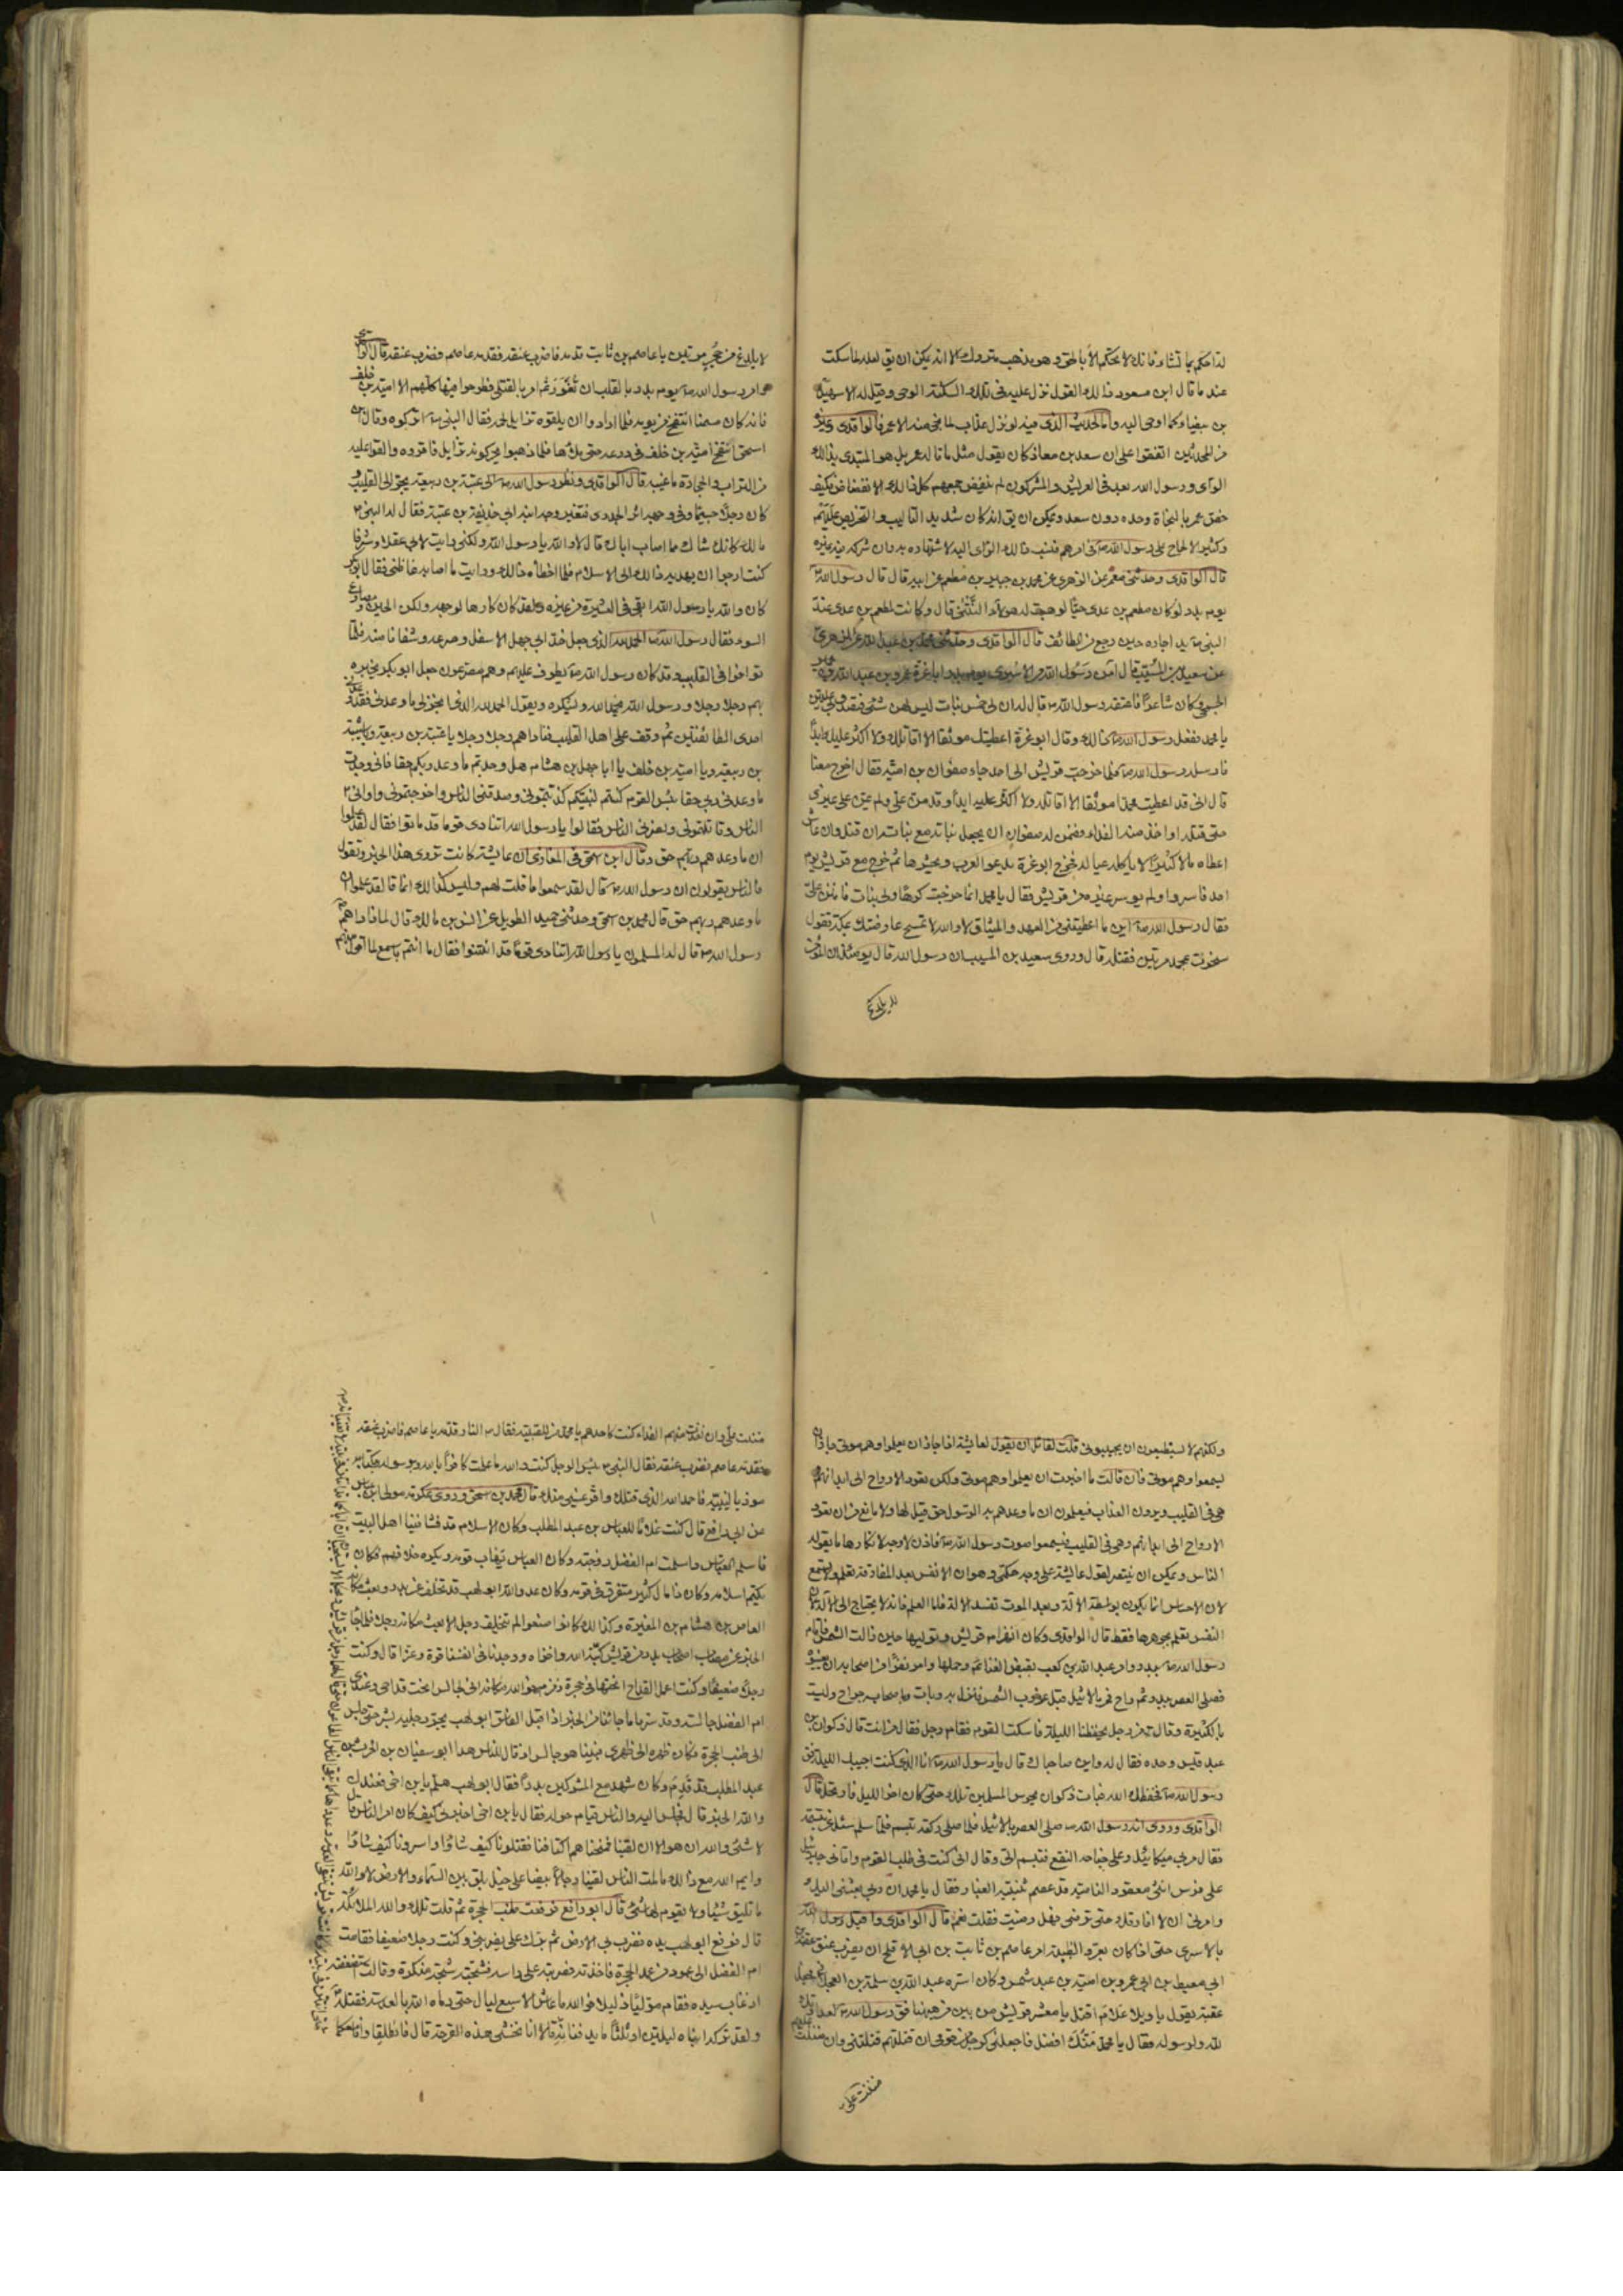 لذاحكم بما تشاء فانك لا تحكم الا بالحق وهو مذهب متروك الا انه يمكن ان يق لعله لما سكت
عند ما قال ابن مسعود ذالك القول نزل عليه فى تلك السكتة الوحى وقيل له الا سهيل
بن بيضاء كما اوحى اليه واما الحديث الذى فيه لو نزل عذاب لما نجى منه الا عمر فالواقدى وغيره
من المحدثين اتفقوا على ان سعد بن معاذ كان يقول مثل ما قاله عمر بل هو المبتدى بذالك
الراى ورسول الله بعد فى العريش والمشركون لم ينفض جمعهم كل ذالك الانفضاض فكيف
خص عمر بالنجاة وحده دون سعد ويمكن ان يق انه كان شديد التاليب والتحريض عليهم
وكثير الالحاح على رسول الله ص فى امرهم فنسب ذالك الراى اليه لاشتهاره به وان شركه فيه غيره
قال الواقدى وحدثنى معمر عن الزهرى عن محمد بن جبير بن مطعم عن ابيه قال قال رسول الله ص
يوم بدر لو كان مطعم بن عدى حيا لوهبت له هولاء النتنى قال وكانت لمطعم بن عدى عند
النبى ص يد اجاره حين رجع من الطائف قال الواقدى وحدثنى محمد بن عبد الله عن الزهرى
عن سعيد بن المسيب قال امن رسول الله ص من الاسرى يوم بدر ابا عزة عمرو بن عبد الله بن عمير
الجمحى وكان شاعرا فاعتقه رسول الله ص قال له ان لى خمس بنات ليس لهن شئ فتصدق بى عليهن
يا محمد ففعل رسول الله ص ذالك وقال ابو عزة اعطيتك موثقا الا اقاتلك ولا اكثر عليك ابدا
فارسله رسول الله ص فلما خرجت قريش الى احد جاء صفوان بن امية فقال اخرج معنا
قال انى قد اعطيت محمدا موثقا الا اقاتله ولا اكثر عليه ابدا وقد من على ولم يمن على غيرى
حتى قتله او اخذ منه الفداء فضمن له صفوان ان يجعل بناته مع بناته ان قتل وان عاش
اعطاه مالا كثيرا لا ياكله عياله فخرج ابو عزة يدعو العرب ويحشرها ثم خرج مع قريش يوم
احد فاسر ولم يوسر غيره من قريش فقال يا محمد انما خرجت كرها ولى بنات فامنن على
فقال رسول الله ص اين ما اعطيتنى من العهد والميثاق لا والله لا تمسح عارضيك بمكة تقول
سخرت بمحمد مرتين فقتله قال وروى سعيد بن المسيب ان رسول الله قال يومئذ ان المومن
لا يلدغ
لا يلدغ من جحر مرتين يا عاصم بن ثابت قدمه فاضرب عنقه فقدمه عاصم فضرب عنقه قال الواقدى
وامر رسول الله ص يوم بدر بالقلب ان تغور ثم امر بالقتلى فطرحوا فيها كلهم الا امية بن خلف
فانه كان مسمنا انتفخ من يومه فلما ارادوا ان يلقوه تزايل لحمه فقال النبى ص اتركوه وقال ابن
اسحق انتفخ امية بن خلف فى درعه حتى ملأها فلما ذهبوا يحركونه تزايل فاقروه والقوا عليه
من التراب والحجارة ما غيبه قال الواقدى ونظر رسول الله ص الى عتبة بن ربيعة يجر الى القليب
كان رجلا جسيما وفى وجهه اثر الجدرى فتغير وجه ابنه ابى حذيفة بن عتبة فقال له النبى ص
مالك كانك شاك ما اصاب اباك قال لا والله يا رسول الله ولكنى رايت لابى عقلا وشرفا
كنت ارجوا ان يهديه ذالك الى الاسلام فلما اخطأه ذالك ورايت ما اصابه غاظنى فقال ابو بكر
كان والله يا رسول الله ابقى فى العشيرة من غيره ولقد كان كارها لوجهه ولكن الحين ومصارع
السوء فقال رسول الله ص الحمد لله الذى جعل خد ابى جهل الاسفل وصرعه وشفانا منه فلما
توافوا فى القليب وقد كان رسول الله ص يطوف عليهم وهم مصرعون جعل ابو بكر يخبره
بهم رجلا رجلا ورسول الله يحمد الله ويشكره ويقول الحمد لله الذى انجز لى ما وعدنى فقد وعدنى
احدى الطائفتين ثم وقف على اهل القليب فناداهم رجلا رجلا يا عتبة بن ربيعة ويا شيبة
بن ربيعة ويا امية بن خلف يا ابا جهل بن هشام هل وجدتم ما وعد ربكم حقا فانى وجدت
ما وعدنى ربى حقا بئس القوم كنتم لنبيكم كذبتمونى وصدقنى الناس واخرجتمونى واوانى
الناس وقاتلتمونى ونصرنى الناس فقالوا يا رسول الله اتنادى قوما قد ماتوا فقال لقد علموا
ان ما وعدهم ربهم حق وقال ابن اسحق فى المغازى ان عايشة كانت تروى هذا الخبر وتقول
فالناس يقولون ان رسول الله ص قال لقد سمعوا ما قلت لهم وليس كذالك انما قال لقد علموا ان
ما وعدهم ربهم حق قال محمد بن اسحق وحدثنى حميد الطويل عن انس بن مالك قال لما ناداهم
رسول الله ص قال له المسلمون يا رسول الله اتنادى قوما قد انتنوا فقال ما انتم باسمع لما اقول منهم
ولكنهم لا يستطيعون ان يجيبونى قلت لقائل ان يقول لعايشة اذا جاز ان يعلموا وهم موتى جاز ان
يسمعوا وهم موتى فان قالت ما اخبرت ان يعلموا وهم موتى ولكن تعود الارواح الى ابدانهم
وهى فى القليب ويرون العذاب فيعلمون ان ما وعدهم به الرسول حق قيل لها ولا مانع من ان تعود
الارواح الى ابدانهم وهى فى القليب فيسمعوا صوت رسول الله ص فاذن لا وجه لانكارها ما يقوله
الناس ويمكن ان ينتصر لقول عايشة على وجه حكمى وهو ان الانفس بعد المفارقة تعلم ولا تسمع
لان الاحساس انما يكون بواسطة الالة وبعد الموت تفسد الالة فاما العلم فانه لا يحتاج الى الالة لان
النفس تعلم بجوهرها فقط قال الواقدى وكان انهزام قريش وتوليها حين زالت الشمس فاقام
رسول الله ص ببدر وامر عبد الله بن كعب بقبض الغنائم وحملها وامر نفرا من اصحابه ان يعينوه
فصلى العصر ببدر ثم راح فمر بالاثيل قبل غروب الشمس فنزل به وبات وباصحابه جراح وليست
بالكثيرة وقال من رجل يحفظنا الليلة فاسكت القوم فقام رجل فقال من انت قال ذكوان بن
عبد قيس وحده فقال له واين صاحباك قال يا رسول الله ص انا الذى كنت اجيبك الليلة فق
رسول الله ص فحفظك الله فبات ذكوان يحرس المسلمين تلك حتى كان اخر الليل فارتحل قال
الواقدى وروى ان رسول الله ص صلى العصر بالاثيل فلما صلى ركعة تبسم فلما سلم سئل عن تبسمه
فقال مر بى ميكائيل وعلى جناحه النقع فتبسم الى وقال انى كنت فى طلب القوم واتانى جبرئيل
على فرس انثى معقود الناصية قد عصم ثنيتيه الغبار فقال يا محمد ان ربى بعثنى اليك
وامرنى ان لا افارقك حتى ترضى فهل رضيت فقلت نعم قال الواقدى واقبل رسول الله
بالاسرى حتى اذا كان بعرق الظبية امر عاصم بن ثابت بن ابى الاقلح ان يضرب عنق عقبة بن
ابى معيط بن ابى عمرو بن امية بن عبد شمس وكان اسره عبد الله بن سلمة بن العجلانى فجعل
عقبة يقول يا ويلا علام اقتل يا معشر قريش من بين من هيهنا فق رسول الله ص لعداوتك
لله ولرسوله فقال يا محمد منك افضل فاجعلنى كرجل من قومى ان قتلتهم قتلتنى وان مننت عليهم
مننت على
مننت على وان اخذت منهم الفداء كنت كاحدهم يا محمد من للصبية فقال ص النار قدمه يا عاصم فاضرب عنقه
فقدمه عاصم فضرب عنقه فقال النبى ص بئس الرجل كنت والله ما علمت كافرا بالله وبرسوله وبكتابه
موذيا لنبيه فاحمد الله الذى قتلك واقر عينى منك قال محمد بن اسحق وروى عكرمة مولى ابن عباس
عن ابى رافع قال كنت غلاما للعباس بن عبد المطلب وكان الاسلام قد فشا فينا اهل البيت
فاسلم العباس واسلمت ام الفضل زوجته وكان العباس يهاب قومه ويكره خلافهم فكان
يكتم اسلامه وكان ذا مال كثير متفرق فى قومه وكان عدو الله ابو لهب قد تخلف عن بدر وبعث مكانه
العاص بن هشام بن المغيرة وكذالك كانوا صنعوا لم يتخلف رجل الا بعث مكانه رجلا فلما جاء
الخبر عن مصاب اصحاب بدر من قريش كبته الله واخزاه ووجدنا فى انفسنا قوة وعزا قال وكنت
رجلا ضعيفا وكنت اعمل القداح انحتها فى حجرة زمزم فوالله انى لجالس انحت قداحى وعندى
ام الفضل جالسة وقد سرنا ما جائنا من الخبر اذ اقبل الفاسق ابو لهب يجر رجليه بشر حتى جلس
الى طنب الحجرة فكان ظهره الى ظهرى فبينا هو جالس اذ قال الناس هذا ابو سفيان بن الحرث بن
عبد المطلب قد قدم وكان شهد مع المشركين بدرا فقال ابو لهب هلم يابن اخى فعندك
والله الخبر قال فجلس اليه والناس قيام حوله فقال يابن اخى اخبرنى كيف كان امر الناس قال
لا شئ والله ان هو الا ان لقيناهم فمنحناهم اكتافنا فقتلونا كيف شاؤا واسرونا كيف شاؤا
وايم الله مع ذالك ما لمت الناس لقينا رجالا بيضا على خيل بلق بين السماء والارض لا والله
ما تليق شيئا ولا يقوم لها شئ قال ابو رافع فرفعت طنب الحجرة ثم قلت تلك والله الملائكة
قال فرفع ابو لهب يده فضرب بى الارض ثم برك على يضربنى وكنت رجلا ضعيفا فقامت
ام الفضل الى عمود من عمد الحجرة فاخذته فضربته على راسه فشجته شجة منكرة وقالت تستضعفه
اذ غاب سيده فقام موليا ذليلا فوالله ما عاش الا سبع ليال حتى رماه الله بالعدسة فقتلته
ولقد تركه ابناه ليلتين او ثلثا ما يدفنانه قالا انا نخشى هذه القرحة قال فانطلقا وانا معكما